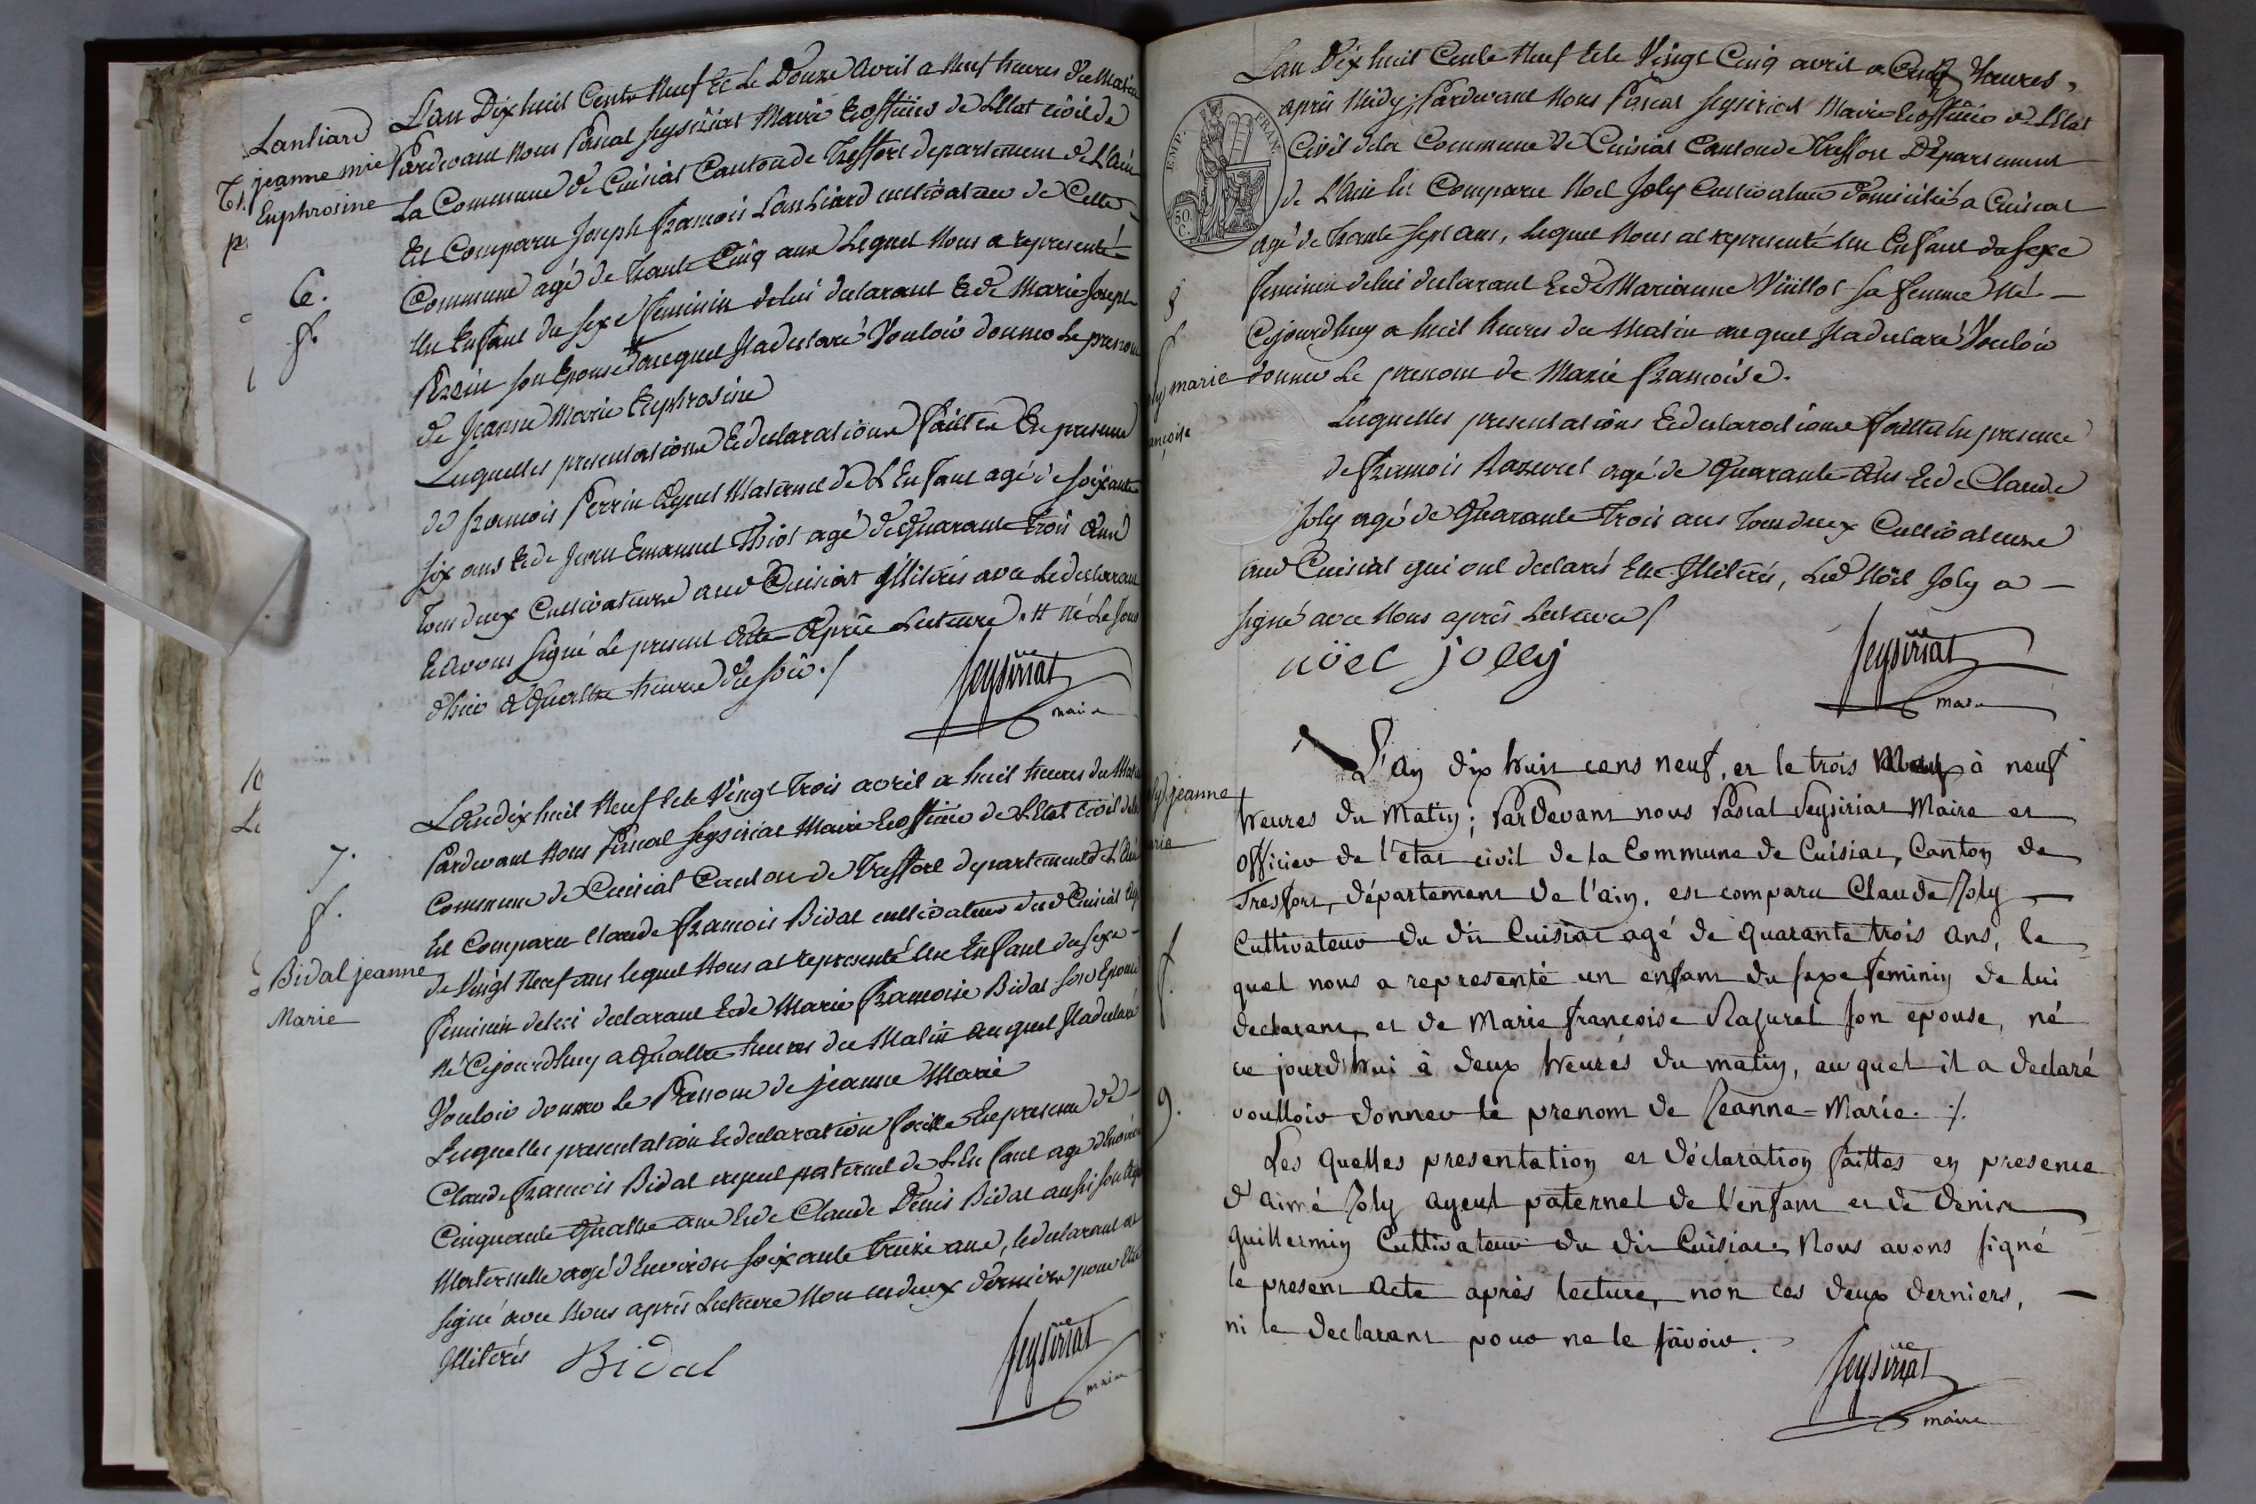 Lanhiard
jeanne mie
Euphrosine
6.
f.
L'an Dix huit Cents Neuf Et Le Douze Avril a Neuf heures du Matin
Pardevant Nous Pascal Seysiriat Maire Et officier de L'Etat civil de
La Commune de Cuisiat Canton de Treffort departement de L'ain
Est Comparu Joseph François Lanhiard cultivateur de Cette
Commune agé de Trante Cinq ans Lequel Nous a representé
Un Enfant du sexe feminin de lui declarant Et de Marie Joseph
Perrin son Epouse # auquel Il a declaré Vouloir donner Le prenom
de Jeanne Marie Euphrosine
Lesquelles presentations Et declarations faittes En presence
de françois Perrin Ayeul Maternel de L'Enfant agé de soixante
six ans Et de Jean Emanuel Thiot agé de Quarante Trois ans
Tous deux Cultivateurs aud Cuisiat Illitérés avec Le declarant
Et avons signé Le present acte Après Lecture. # né Le jour
d'hier a Quattre heures du soir ./
Seysiriat
maire
7.
f.
Bidal jeanne
Marie
L'an dix huit Neuf Et le Vingt Trois avril a huit heures du Matin
Pardevant Nous Pascal Seysiriat Maire Et officier de L'Etat civil de la
Commune de Cuisiat Canton de Treffort departement de L'ain
Est Comparu Claude François Bidal cultivateur dud Cuisiat agé
de Vingt Neuf ans lequel Nous at representé Un Enfant du sexe
feminin de lui declarant Et de Marie Françoise Bidal son Epouse
Né Cejourdhuy a Quattre heures du Matin auquel Il a declaré
Vouloir donner Le Prenom de jeanne Marie
Lesquelles presentation Et declaration faitte En presence de
Claude François Bidal ayeul paternel de L'Enfant agé d'Environ
Cinquante Quattre ans Et de Claude Denis Bidal aussi son ayeul
Maternelle agé d'Environ soixante Treize ans, le declarant at
signé avec Nous après Lecture Non ces deux derniers pour Etre
Illitérés
Bidal
Seysiriat
maire
EMP. FRAN.
50 C.
8
f
joly marie
françoise
L'an Dix huit Cents Neuf Et le Vingt Cinq avril a Cinq Heures
après Midy; Pardevant Nous Pascal Seysiriat Maire Et officier de L'Etat
Civil de la Commune de Cuisiat Canton de Treffort Département
de L'Ain Est Comparu Noel Joly Cultivateur domicilié a Cuisiat
agé de Trante sept ans, lequel Nous at representé Un Enfant du sexe
feminin de lui declarant Et de Marianne Vuillot sa femme Né
Cejourdhuy a huit heures du Matin auquel Il a declaré Vouloir
donner Le prenom de Marie Françoise.
Lesquelles presentations Et declarations faittes En presence
de François Razurel agé de Quarante ans Et de Claude
Joly agé de Quarante Trois ans Tous deux Cultivateurs
aud Cuisiat qui ont declarés Etre Illitérés, Led Nöel Joly a
signé avec Nous après Lecture /
nöel jolly
Seysiriat
maire
joly jeanne
marie
f.
9.
L'an dix huit cens neuf, et le trois May à neuf
heures du Matin; Pardevant nous Pascal Seysiriat Maire et
officier de l'etat civil de la Commune de Cuisiat, Canton de
Tresfort, département de l'ain, est comparu Claude Joly
Cultivateur du dit Cuisiat agé de quarante trois ans, le
quel nous a representé un enfant du sexe feminin de lui
declarant, et de Marie françoise Rasurel son epouse, né
ce jourd'hui à deux heures du matin, auquel il a declaré
voulloir donner le prenom de Jeanne-Marie. ./.
Les quelles presentation et déclaration faittes en presence
d'aimé Joly ayeul paternel de l'enfant et de Denis
Guillermin Cultivateur du dit Cuisiat. Nous avons signé
le present acte après lecture, non ces deux derniers,
ni le declarant pour ne le sávoir.
Seysiriat
maire